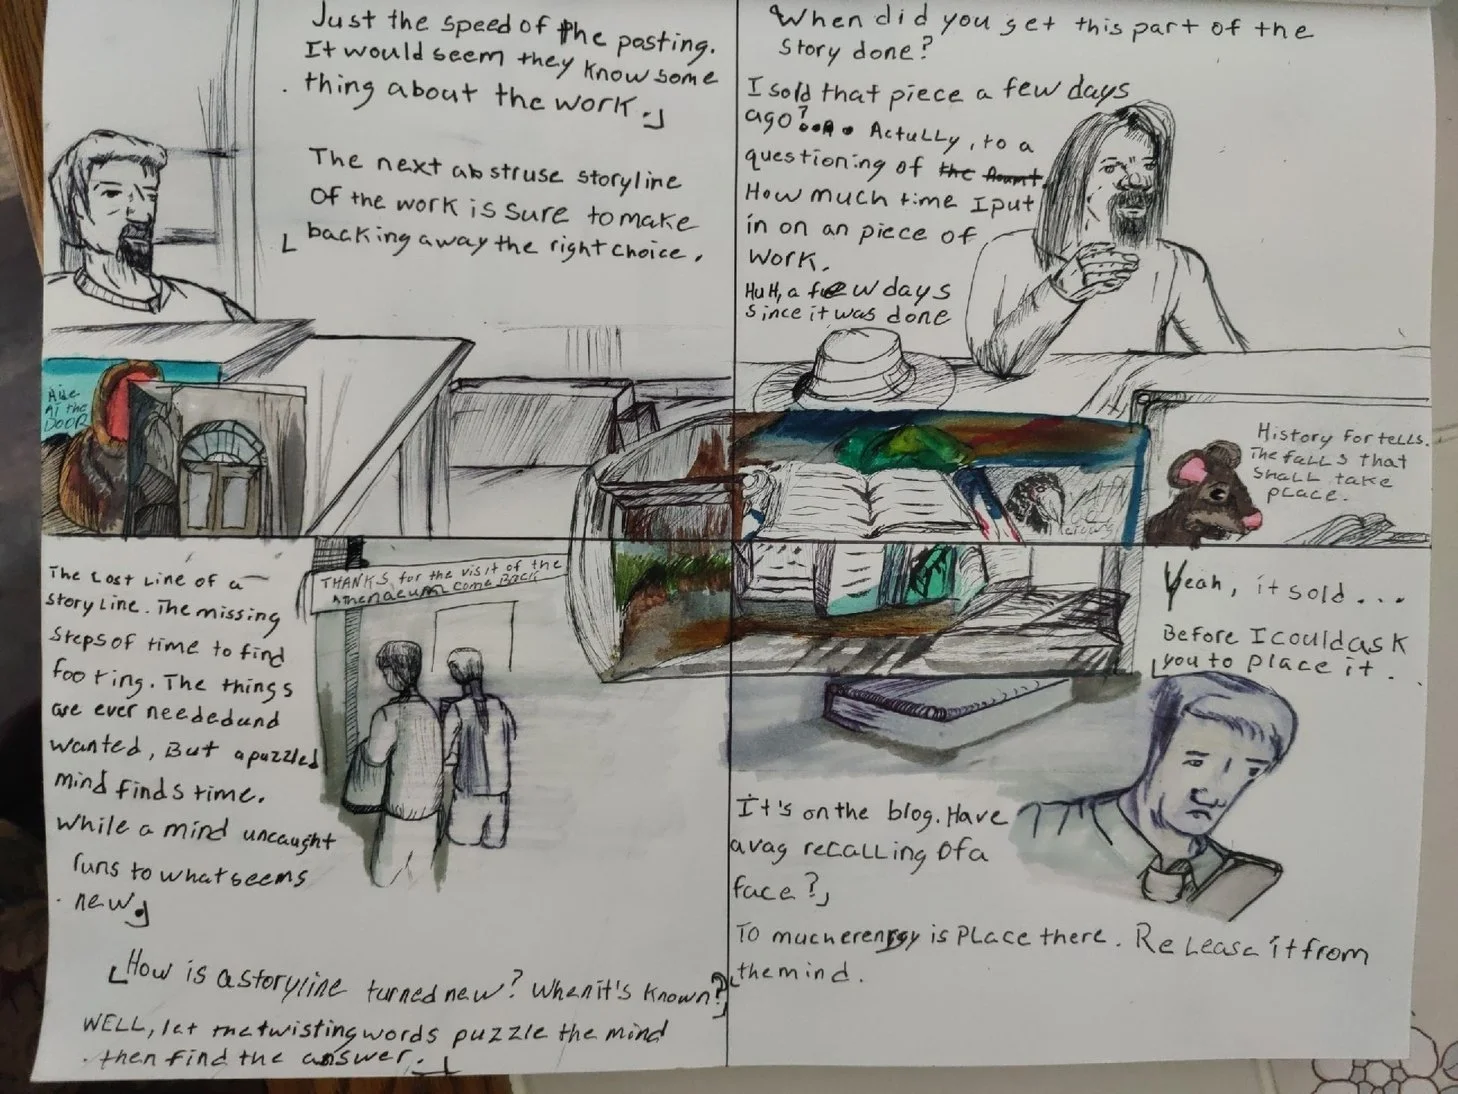 Just the speed of the posting.
It would seem they know some
thing about the work.
The next abstruse storyline
Of the work is sure to make
backing away the right choice.
Aide
At the
DOOR
When did you get this part of the
Story done?
I sold that piece a few days
ago?... Actully, to a
questioning of the
How much time I put
in on an piece of
work.
HuH, a few days
since it was done
History for tells.
The falls that
shall take
place.
crows
The Lost Line of a
story Line. The missing
steps of time to find
footing. The things
are ever needed und
wanted, But a puzzled
mind finds time.
While a mind uncaught
runs to what seems
new.
THANKS for the visit of the
Athenaeum Come Back
How is a storyline turned new? When it's known?
WELL, let the twisting words puzzle the mind
then find the answer.
Yeah, it sold...
Before I could ask
you to place it..
It's on the blog. Have
a vag recalling Of a
face?
To much erengy is PLace there. ReLease it from
the mind.